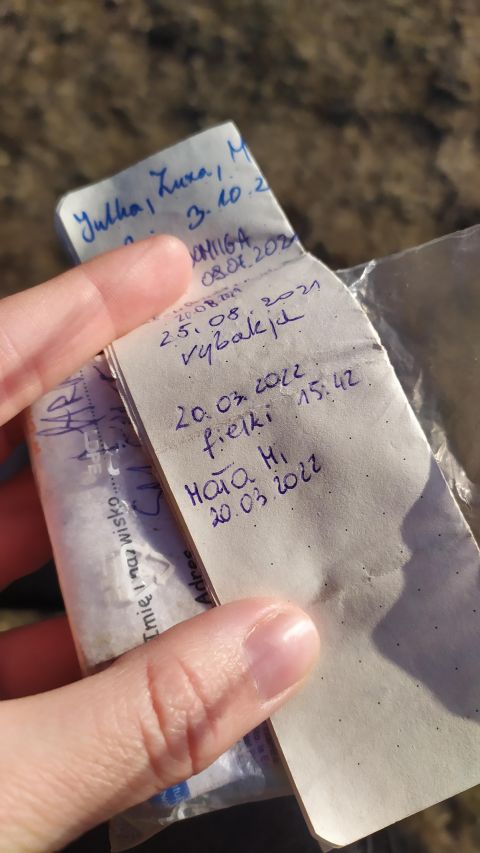 Julka, Zuza, M
3.10.2
08.07.2021
20.08.2021
25.08.2021
rybakja
20.03.2022
fietki 15:42
Mała Mi
20.03.2022
Imię i nazwisko....
Adres